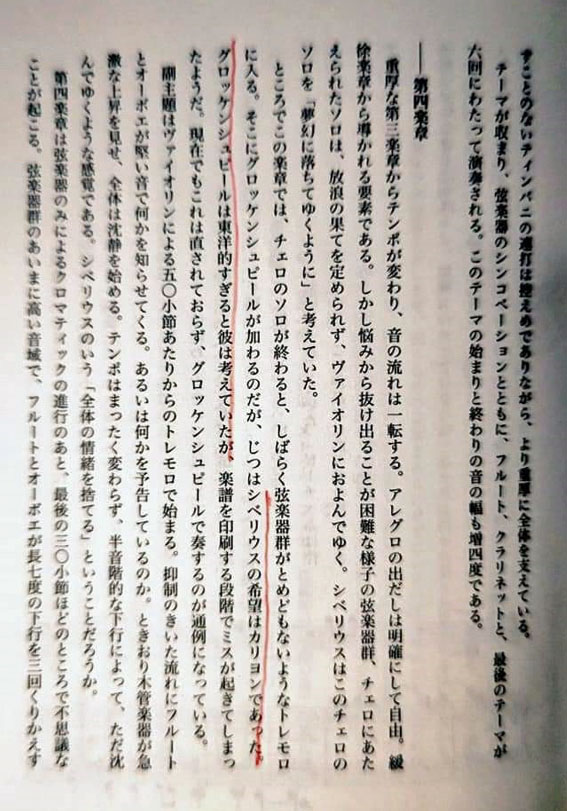 すことのないティンパニの連打は控えめでありながら、より重厚に全体を支えている。
テーマが収まり、弦楽器のシンコペーションとともに、フルート、クラリネットと、最後のテーマが
六回にわたって演奏される。このテーマの始まりと終わりの音の幅も増四度である。
――第四楽章
重厚な第三楽章からテンポが変わり、音の流れは一転する。アレグロの出だしは明確にして自由。緩
徐楽章から導かれる要素である。しかし悩みから抜け出ることが困難な様子の弦楽器群、チェロにあた
えられたソロは、放浪の果てを定められず、ヴァイオリンにおよんでゆく。シベリウスはこのチェロの
ソロを「夢幻に落ちてゆくように」と考えていた。
ところでこの楽章では、チェロのソロが終わると、しばらく弦楽器群がとめどもないようなトレモロ
に入る。そこにグロッケンシュピールが加わるのだが、じつはシベリウスの希望はカリヨンであった。
グロッケンシュピールは東洋的すぎると彼は考えていたが、楽譜を印刷する段階でミスが起きてしまっ
たようだ。現在でもこれは直されておらず、グロッケンシュピールで奏するのが通例になっている。
副主題はヴァイオリンによる五〇小節あたりからのトレモロで始まる。抑制のきいた流れにフルート
とオーボエが堅い音で何かを知らせてくる。あるいは何かを予告しているのか。ときおり木管楽器が急
激な上昇を見せ、全体は沈静を始める。テンポはまったく変わらず、半音階的な下行によって、ただ沈
んでゆくような感覚である。シベリウスのいう「全体の情緒を捨てる」ということだろうか。
第四楽章は弦楽器のみによるクロマティックの進行のあと、最後の三〇小節ほどのところで不思議な
ことが起こる。弦楽器群のあいまに高い音域で、フルートとオーボエが長七度の下行を三回くりかえす